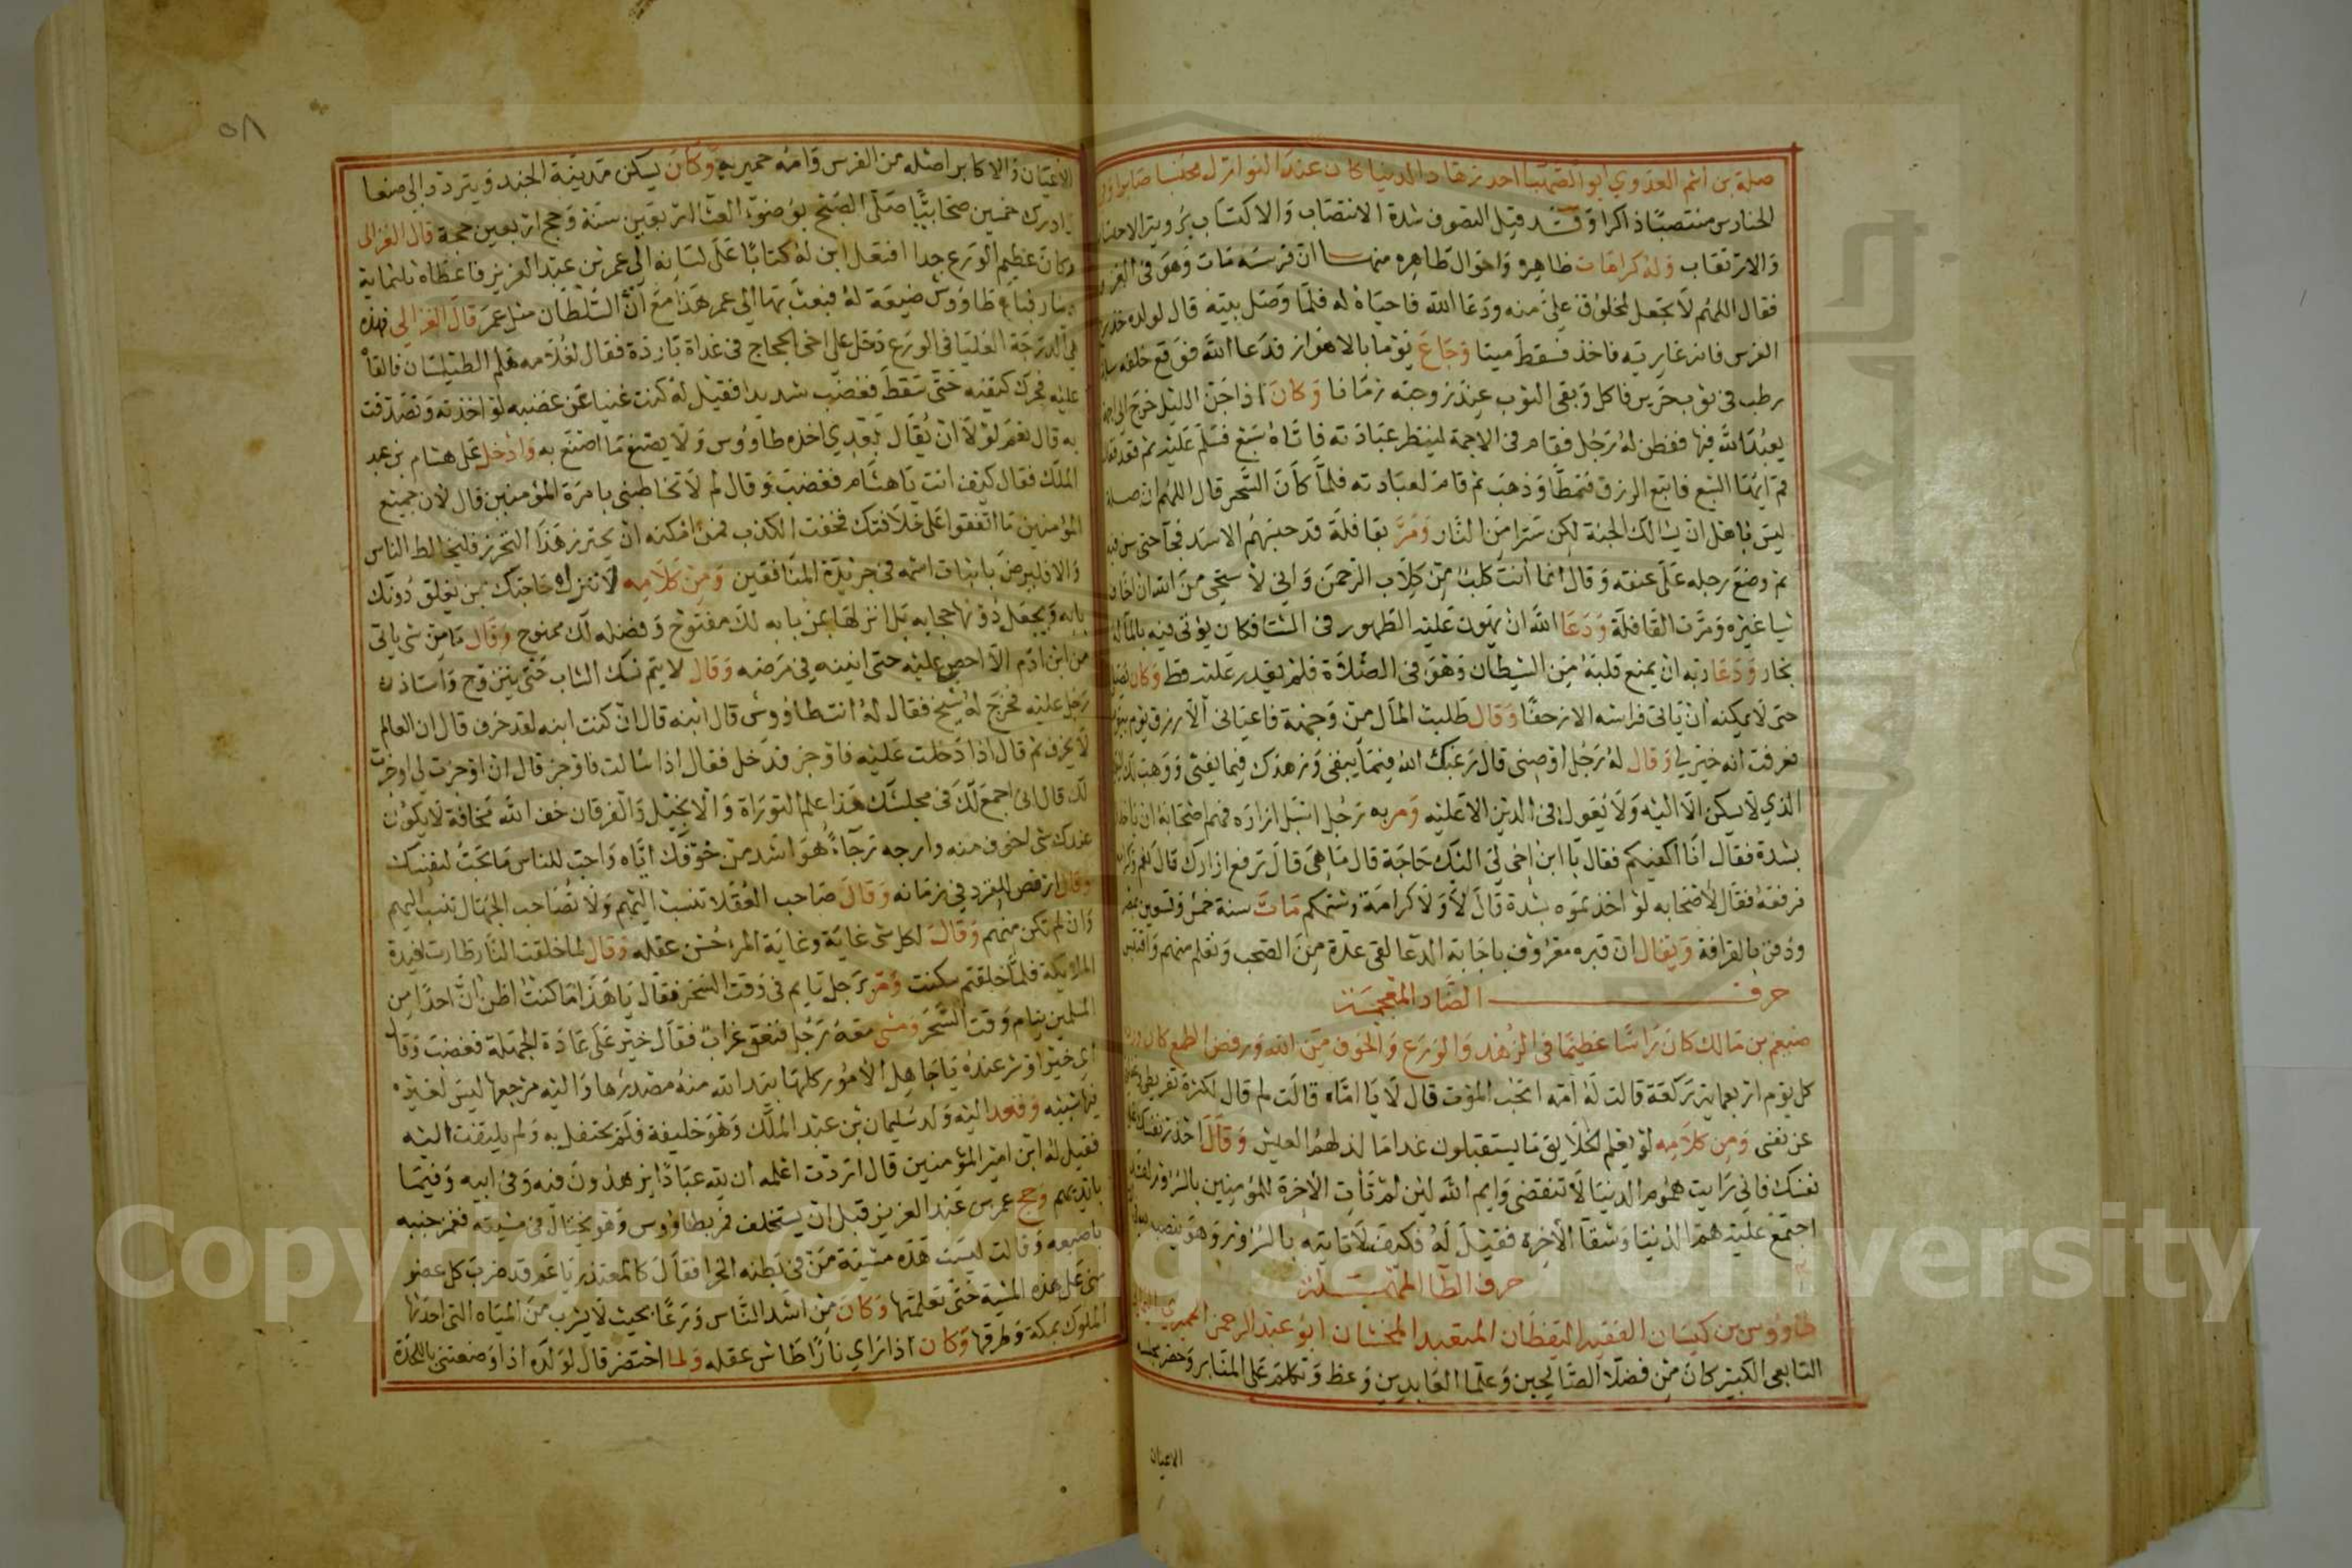 صلة بن اشم العدوي ابو الصهبا احد زهاد الدنيا كان عند النوازل محتسبا صابرا
الحنادس منتصبا ذاكرا وقد قيل التصوف شدة الانتصاب والاكتساب برؤية الاحتساب
والارتقاب وله كرامات ظاهره واحوال طاهره منها ان فرسه مات وهو في الغزو
فقال اللهم لا تجعل لمخلوق علي منه ودعا الله فاحياه له فلما وصل بيته قال لولده خذ سرج
الفرس فانه عارية فاخذ فسقط ميتا وجاع يوما بالاهواز فدعا الله فوقع خلفه
رطب في ثوب حرير فاكل وبقي الثوب عند زوجته زمانا وكان اذا جن الليل خرج الى اجمة
يعبد الله فيها ففطن له رجل فقام في الاجمة لينظر عبادته فاتاه سبع فسلم عليه ثم قعد فقال
قم ايها السبع فابتغ الرزق فتمطا وذهب ثم قام لعبادته فلما كان السحر قال اللهم ان صلة
ليس باهل ان يسالك الجنة لكن سترا من النار ومر بقافلة قد حبسهم الاسد فجا حتى مس
ثم وضع رجله على عنقه وقال انما انت كلب من كلاب الرحمن واني لاستحي من الله ان اخاف
شيا غيره ومرت القافلة ودعا الله ان يهون عليه الطهور في الشتا فكان يوتى فيه بالما له
بخار ودعا ربه ان يمنع قلبه من الشيطان وهو في الصلاة فلم يقدر عليه قط وكان يصلي
حتى لا يمكنه ان ياتي فراشه الا زحفا وقال طلبت المال من وجهه فاعياني الا رزق يوم بيوم
فعرفت انه خير لي وقال له رجل اوصني قال رغبك الله فيما يبقى وزهدك فيما يفنى ووهب لك اليقين
الذي لا يسكن الا اليه ولا يعول في الدين الا عليه ومر به رجل اسبل ازاره فهم اصحابه ان ياخذوه
بشدة فقال انا اكفيكم فقال يا ابن اخي لي اليك حاجة قال ما هي قال ترفع ازارك قال نعم وكرامة
فرفعه فقال لاصحابه لو اخذتموه بشدة قال لا ولا كرامة وشتمكم مات سنة خمس وتسعين
ودفن بالقرافة ويقال ان قبره معروف باجابة الدعا لقي عدة من الصحب وتعلم منهم واقتبس
حرف الضاد المعجمة
ضيغم بن مالك كان راسا عظيما في الزهد والورع والخوف من الله ورفض الطمع كان ورده
كل يوم اربعماية ركعة قالت له امه اتحب الموت قال لا يا اماه قالت لم قال لكثرة تفريطي
عن نفسي ومن كلامه لو يعلم الخلايق ما يستقبلون غدا ما لذ لهم العيش وقال احذر نفسك على
نفسك فاني رايت هموم الدنيا لا تنقضي وايم الله لين لم تات الاخرة المومنين بالسرور لقد
اجتمع عليه هم الدنيا وشقا الاخرة فقيل له فكيف لا تاتيه بالسرور وهو ينصب
حرف الطا المهملة
طاووس بن كيسان الفقيه اليقظان المتعبد المحسان ابو عبد الرحمن الحميري
التابعي الكبير كان من فضلا الصالحين وعلما العابدين وعظ وتكلم على المنابر وحضر مجلسه
الاعيان
٥٨
الاعيان والاكابر اصله من الفرس وامه حميريه وكان يسكن مدينة الجند ويتردد الى صنعا
ادرك خمسين صحابيا صلى الصبح بوضوء العشا اربعين سنة وحج اربعين حجة قال الغزالي
وكان عظيم الورع جدا افتعل ابن له كتابا على لسانه الى عمر بن عبد العزيز فاعطاه ثلثماية
دينار فباع طاووس ضيعة له فبعث بها الى عمر هذا مع ان السلطان مثل عمر قال الغزالي فهذه
هي الدرجة العليا في الورع دخل على اخي الحجاج في غداة باردة فقال لغلامه هلم الطيلسان فالقاه
عليه فحرك كتفيه حتى سقط فغضب شديدا فقيل له كنت غنيا عن غضبه لو اخذته وتصدقت
به قال نعم لولا ان يقال بعدي اخذه طاووس ولا يصنع ما اصنع به وادخل على هشام بن عبد
الملك فقال كيف انت يا هشام فغضب وقال لم لا تخاطبني بامرة المؤمنين قال لان جميع
المؤمنين ما اتفقوا على خلافتك فخفت الكذب فمن امكنه ان يحترز هذا التحرز فليخالط الناس
والا فليرض باثبات اسمه في جريدة المنافقين ومن كلامه لا تنزل حاجتك بمن يغلق دونك
بابه ويجعل دونها حجابه بل انزلها بمن بابه لك مفتوح وفضله لك ممنوح وقال ما من شي ياتي
من ابن ادم الا احصي عليه حتى انينه في مرضه وقال لا يتم نسك الشاب حتى يتزوج واستاذن
رجل عليه فخرج له شيخ فقال له انت طاووس قال ابنه قال ان كنت ابنه لقد خرف قال ان العالم
لا يخرف ثم قال اذا دخلت عليه فاوجز فدخل فقال اذا سالت فاوجز قال ان اوجزت لي اوجزت
لك قال اني اجمع لك في مجلسك هذا علم التوراة والانجيل والفرقان خف الله مخافة لا يكون
عندك شي اخوف منه وارجه رجاء هو اشد من خوفك اياه واحب للناس ما تحب لنفسك
وقال ارفض المغرد في زمانه وقال صاحب العقلا تنسب اليهم ولا تصاحب الجهال تنسب اليهم
وان لم تكن منهم وقال لكل شي غاية وغاية المرء حسن عقله وقال لما خلقت النار طارت افيدة
الملايكة فلما خلقتم سكنت ومر برجل نايم في وقت السحر فقال يا هذا ما كنت اظن ان احدا من
المسلمين ينام وقت السحر ومشى معه رجل فنعق غراب فقال خير على عادة الجهلة فغضب وقال
اي خير او شر عنده يا جاهل الامور كلها بيد الله منه مصدرها واليه مرجعها ليس لغيره
فيها شيئيه وقعد اليه ولد سليمان بن عبد الملك وهو خليفة فلم يحتفل به ولم يلتفت اليه
فقيل له ابن امير المؤمنين قال اردت اعلمه ان لله عبادا يزهدون فيه وفي ابيه وفيما
بايديهم وحج عمر بن عبد العزيز قبل ان يستخلف فمر بطاووس وهو يختال في مشيته فغمز جنبه
باصبعه وقالت ليست هذه مشية من في بطنه الخرا فقال كالمعتذر يا عم قد ضرب كل عضو
مني على هذه المشية حتى تعلمتها وكان من اشد الناس ورعا بحيث لا يشرب من المياه التي احدثها
الملوك بمكة وطرقها وكان اذا راي نارا طاش عقله ولما احتضر قال لولده اذا وضعتني باللحد
Copyright © King Saud University